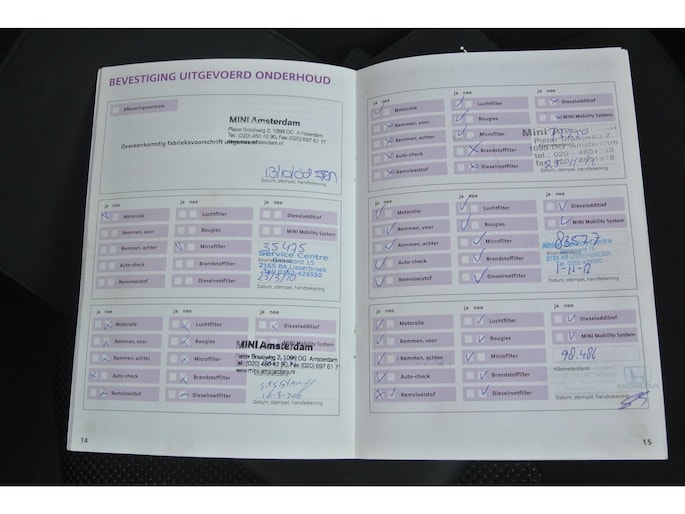 BEVESTIGING UITGEVOERD ONDERHOUD
Afleveringscontrole
MINI Amsterdam
Pieter Braaijweg 2, 1099 DG Amsterdam
Tel.: (020) 460 12 90, Fax (020) 697 61 71
Overeenkomstig fabrieksvoorschrift uitgevoerd
Datum, stempel, handtekening
ja nee
Motorolie
Remmen, voor
Remmen, achter
Auto-check
Remvloeistof
ja nee
Luchtfilter
Bougies
Microfilter
Brandstoffilter
Dieselroetfilter
ja nee
Dieseladditief
MINI Mobility System
35495
Service Centre
2165 BA Lisserbroek
Datum, stempel, handtekening
ja nee
Motorolie
Remmen, voor
Remmen, achter
Auto-check
Remvloeistof
ja nee
Luchtfilter
Bougies
Microfilter
Brandstoffilter
Dieselroetfilter
ja nee
Dieseladditief
MINI Mobility System
MINI Amsterdam
Pieter Braaijweg 2, 1099 DG Amsterdam
Tel.: (020) 460 12 90, Fax (020) 697 61 71
Datum, stempel, handtekening
14
ja nee
Motorolie
Remmen, voor
Remmen, achter
Auto-check
Remvloeistof
ja nee
Luchtfilter
Bougies
Microfilter
Brandstoffilter
Dieselroetfilter
ja nee
Dieseladditief
MINI Mobility System
Datum, stempel, handtekening
ja nee
Motorolie
Remmen, voor
Remmen, achter
Auto-check
Remvloeistof
ja nee
Luchtfilter
Bougies
Microfilter
Brandstoffilter
Dieselroetfilter
ja nee
Dieseladditief
MINI Mobility System
83527
1-11-12
Datum, stempel, handtekening
ja nee
Motorolie
Remmen, voor
Remmen, achter
Auto-check
Remvloeistof
ja nee
Luchtfilter
Bougies
Microfilter
Brandstoffilter
Dieselroetfilter
ja nee
Dieseladditief
MINI Mobility System
98.486
Kilometerstand
Datum, stempel, handtekening
15